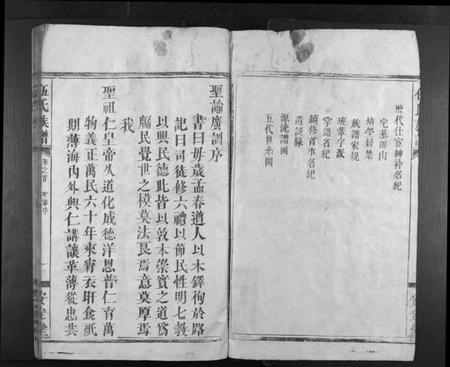 歷代仕宦紳衿名紀
宅基田山
墳塋封禁
族譜家規
班輩字派
掌譜名紀
續修首事名紀
源流譜圖
五代世系圖
聖諭廣訓序
書曰每歲孟春遒人以木鐸徇於路
記曰司徒修六禮以節民性明七教
以興民德此皆以敦本崇實之道為
牖民覺世之模莫法良焉意莫厚焉
我
聖祖仁皇帝久道化成德洋恩普仁育萬
物義正萬民六十年來宵衣旰食祇
期薄海內外興仁講讓革薄從忠共
伍氏族譜
卷之首